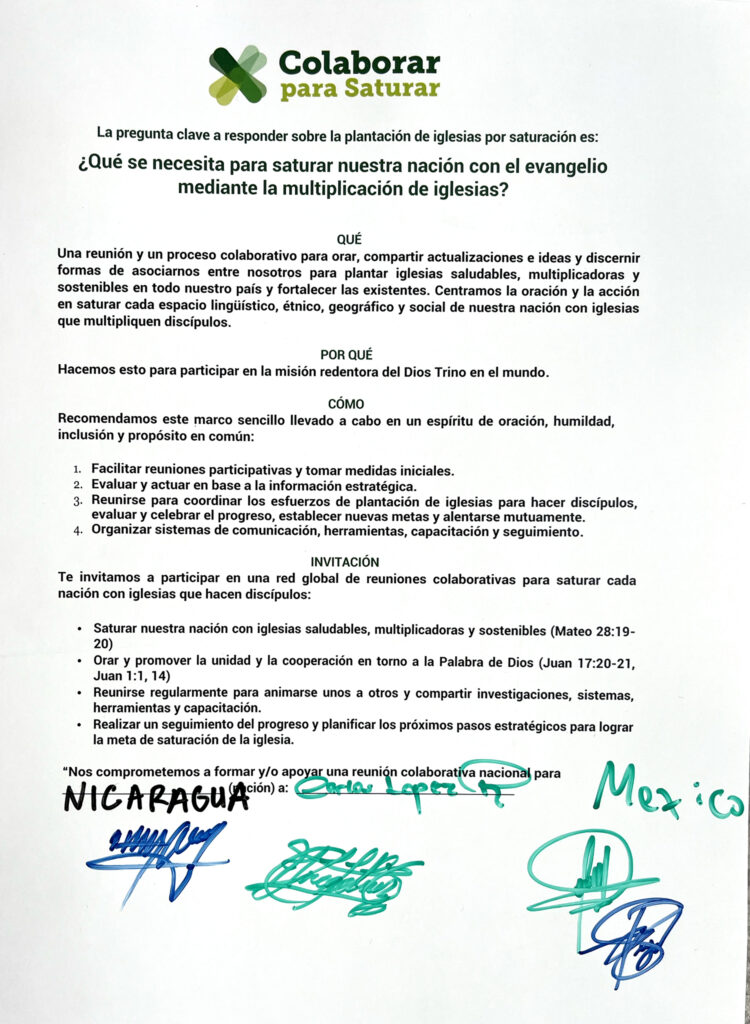 Colaborar
para Saturar
La pregunta clave a responder sobre la plantación de iglesias por saturación es:
¿Qué se necesita para saturar nuestra nación con el evangelio
mediante la multiplicación de iglesias?
QUÉ
Una reunión y un proceso colaborativo para orar, compartir actualizaciones e ideas y discernir
formas de asociarnos entre nosotros para plantar iglesias saludables, multiplicadoras y
sostenibles en todo nuestro país y fortalecer las existentes. Centramos la oración y la acción
en saturar cada espacio lingüístico, étnico, geográfico y social de nuestra nación con iglesias
que multipliquen discípulos.
POR QUÉ
Hacemos esto para participar en la misión redentora del Dios Trino en el mundo.
CÓMO
Recomendamos este marco sencillo llevado a cabo en un espíritu de oración, humildad,
inclusión y propósito en común:
1. Facilitar reuniones participativas y tomar medidas iniciales.
2. Evaluar y actuar en base a la información estratégica.
3. Reunirse para coordinar los esfuerzos de plantación de iglesias para hacer discípulos,
evaluar y celebrar el progreso, establecer nuevas metas y alentarse mutuamente.
4. Organizar sistemas de comunicación, herramientas, capacitación y seguimiento.
INVITACIÓN
Te invitamos a participar en una red global de reuniones colaborativas para saturar cada
nación con iglesias que hacen discípulos:
• Saturar nuestra nación con iglesias saludables, multiplicadoras y sostenibles (Mateo 28:19-
20)
• Orar y promover la unidad y la cooperación en torno a la Palabra de Dios (Juan 17:20-21,
Juan 1:1, 14)
• Reunirse regularmente para animarse unos a otros y compartir investigaciones, sistemas,
herramientas y capacitación.
• Realizar un seguimiento del progreso y planificar los próximos pasos estratégicos para lograr
la meta de saturación de la iglesia.
“Nos comprometemos a formar y/o apoyar una reunión colaborativa nacional para
NICARAGUA (nación) a: Carlos Lopez Mexico